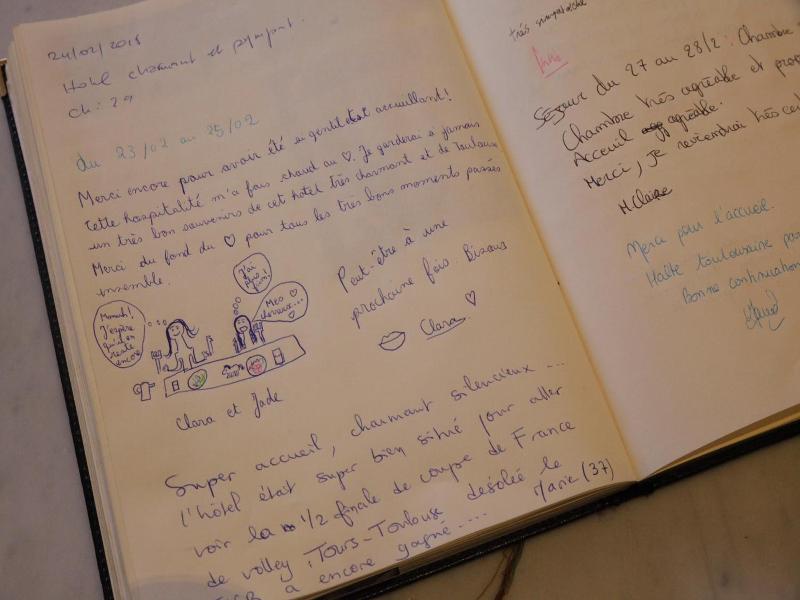 24/02/2018
Hotel charmant et sympat.
Ch: 29
du 23/02 au 25/02
Merci encore pour avoir été si gentil et accueillant!
Cette hospitalité m'a fais chaud au ♡. Je garderai à jamais
un très bon souvenirs de cet hotel très charmant et de Toulouse
Merci du fond du ♡ pour tous les très bons moments passés
ensemble.
Mmmh!,
J'espère
qu'il en
reste
encore
J'ai
plus
faim!
Mes ♡
Peut-être à une
prochaine fois. Bisous
Clara ♡
Clara et Jade
Super accueil, charmant silencieux ...
l'hôtel était super bien situé pour aller
voir la 1/2 finale de coupe de France
de volley, Tours-Toulouse désolée le
a encore gagné .... Marie (37)
très sympatiche
Séjour du 27 au 28/2: Chambre
Chambre très agréable et prop
Acceuil agréable.
Merci, je reviendrai très
M Claire
Merci pour l'accueil.
Halte toulousaine par
Bonne continuation